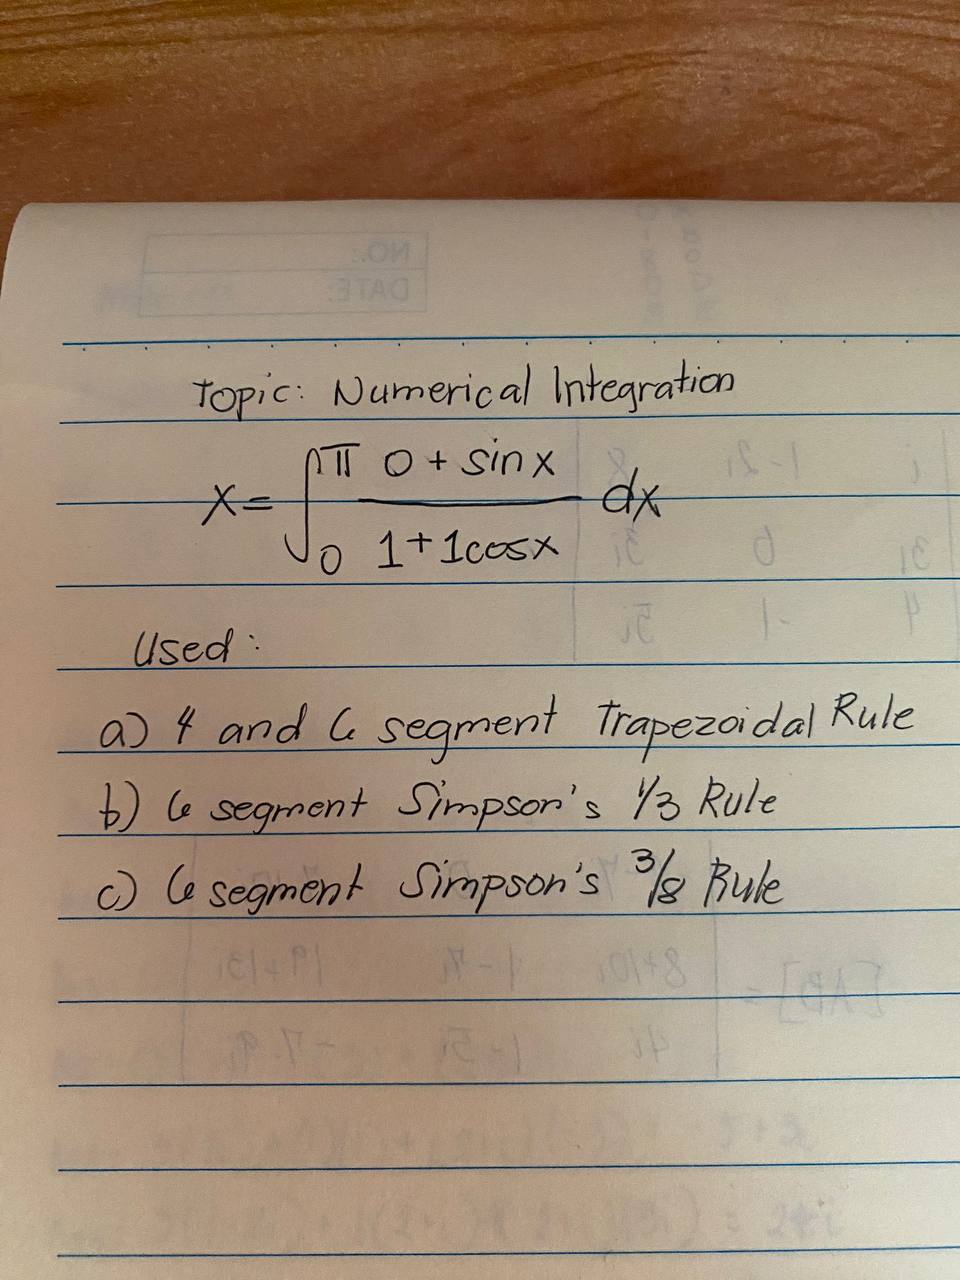 NO.:
DATE:
Topic: Numerical Integration
x = ∫₀^π (0 + sin x)/(1 + 1cosx) dx
Used:
a) 4 and 6 segment Trapezoidal Rule
b) 6 segment Simpson's 1/3 Rule
c) 6 segment Simpson's 3/8 Rule